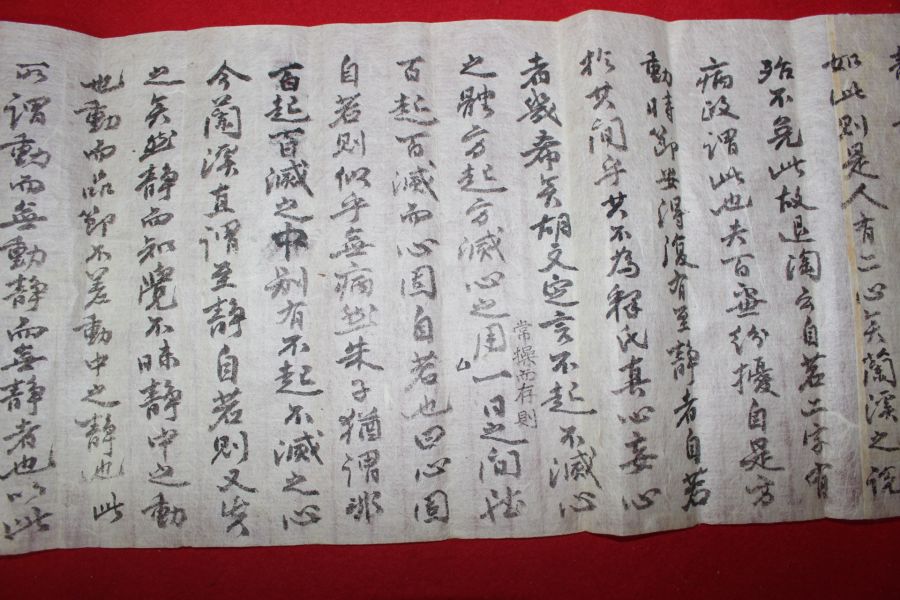 如此則是人有二心矣蘭溪之說
殆不免此故退陶云自若二字有
病政謂此也夫百慮紛擾自是方
動時節安得復有至靜者自若
於其間乎其不為釋氏真心妄心
者幾希矣胡文定言不起不滅心
之體方起方滅心之用一日之間雖
常操而存則
百起百滅而心固自若也曰心固
自若則似乎無病然朱子猶謂非
百起百滅之中別有不起不滅之心
今蘭溪直謂至靜自若則又失
之矣然靜而知覺不昧靜中之動
也動而品節不差動中之靜也此
所謂動而無動靜而無靜者也以此